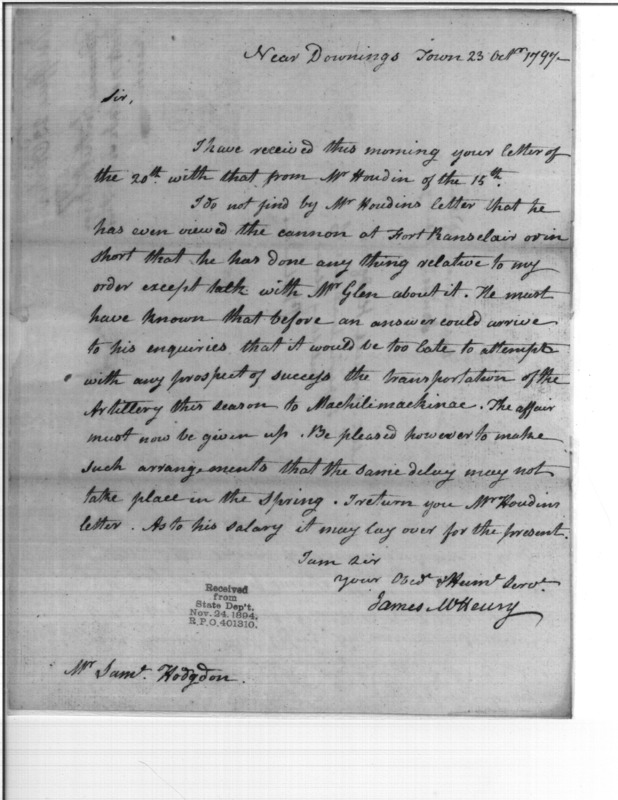 Near Downings Town 23 Octr. 1797—
Sir,
I have received this morning your letter of
the 20th. with that from Mr Houdin of the 15th.
I do not find by Mr Houdins letter that he
has even viewed the cannon at Fort Ranselair or in
short that he has done any thing relative to my
order except talk with Mr Glen about it. He must
have known that before an answer could arrive
to his enquiries that it would be too late to attempt
with any prospect of success the transportation of the
Artillery this season to Machilimackinac. The affair
must now be given up. Be pleased however to make
such arrangements that the same delay may not
take place in the spring. I return you Mr Houdins
letter. As to his salary it may lay over for the present.
I am Sir
your Obed. & Hume. Servt.
James McHenry
Received
from
State Dep't.
Nov. 24, 1894,
R.P.O. 401310.
Mr Saml. Hodgdon.